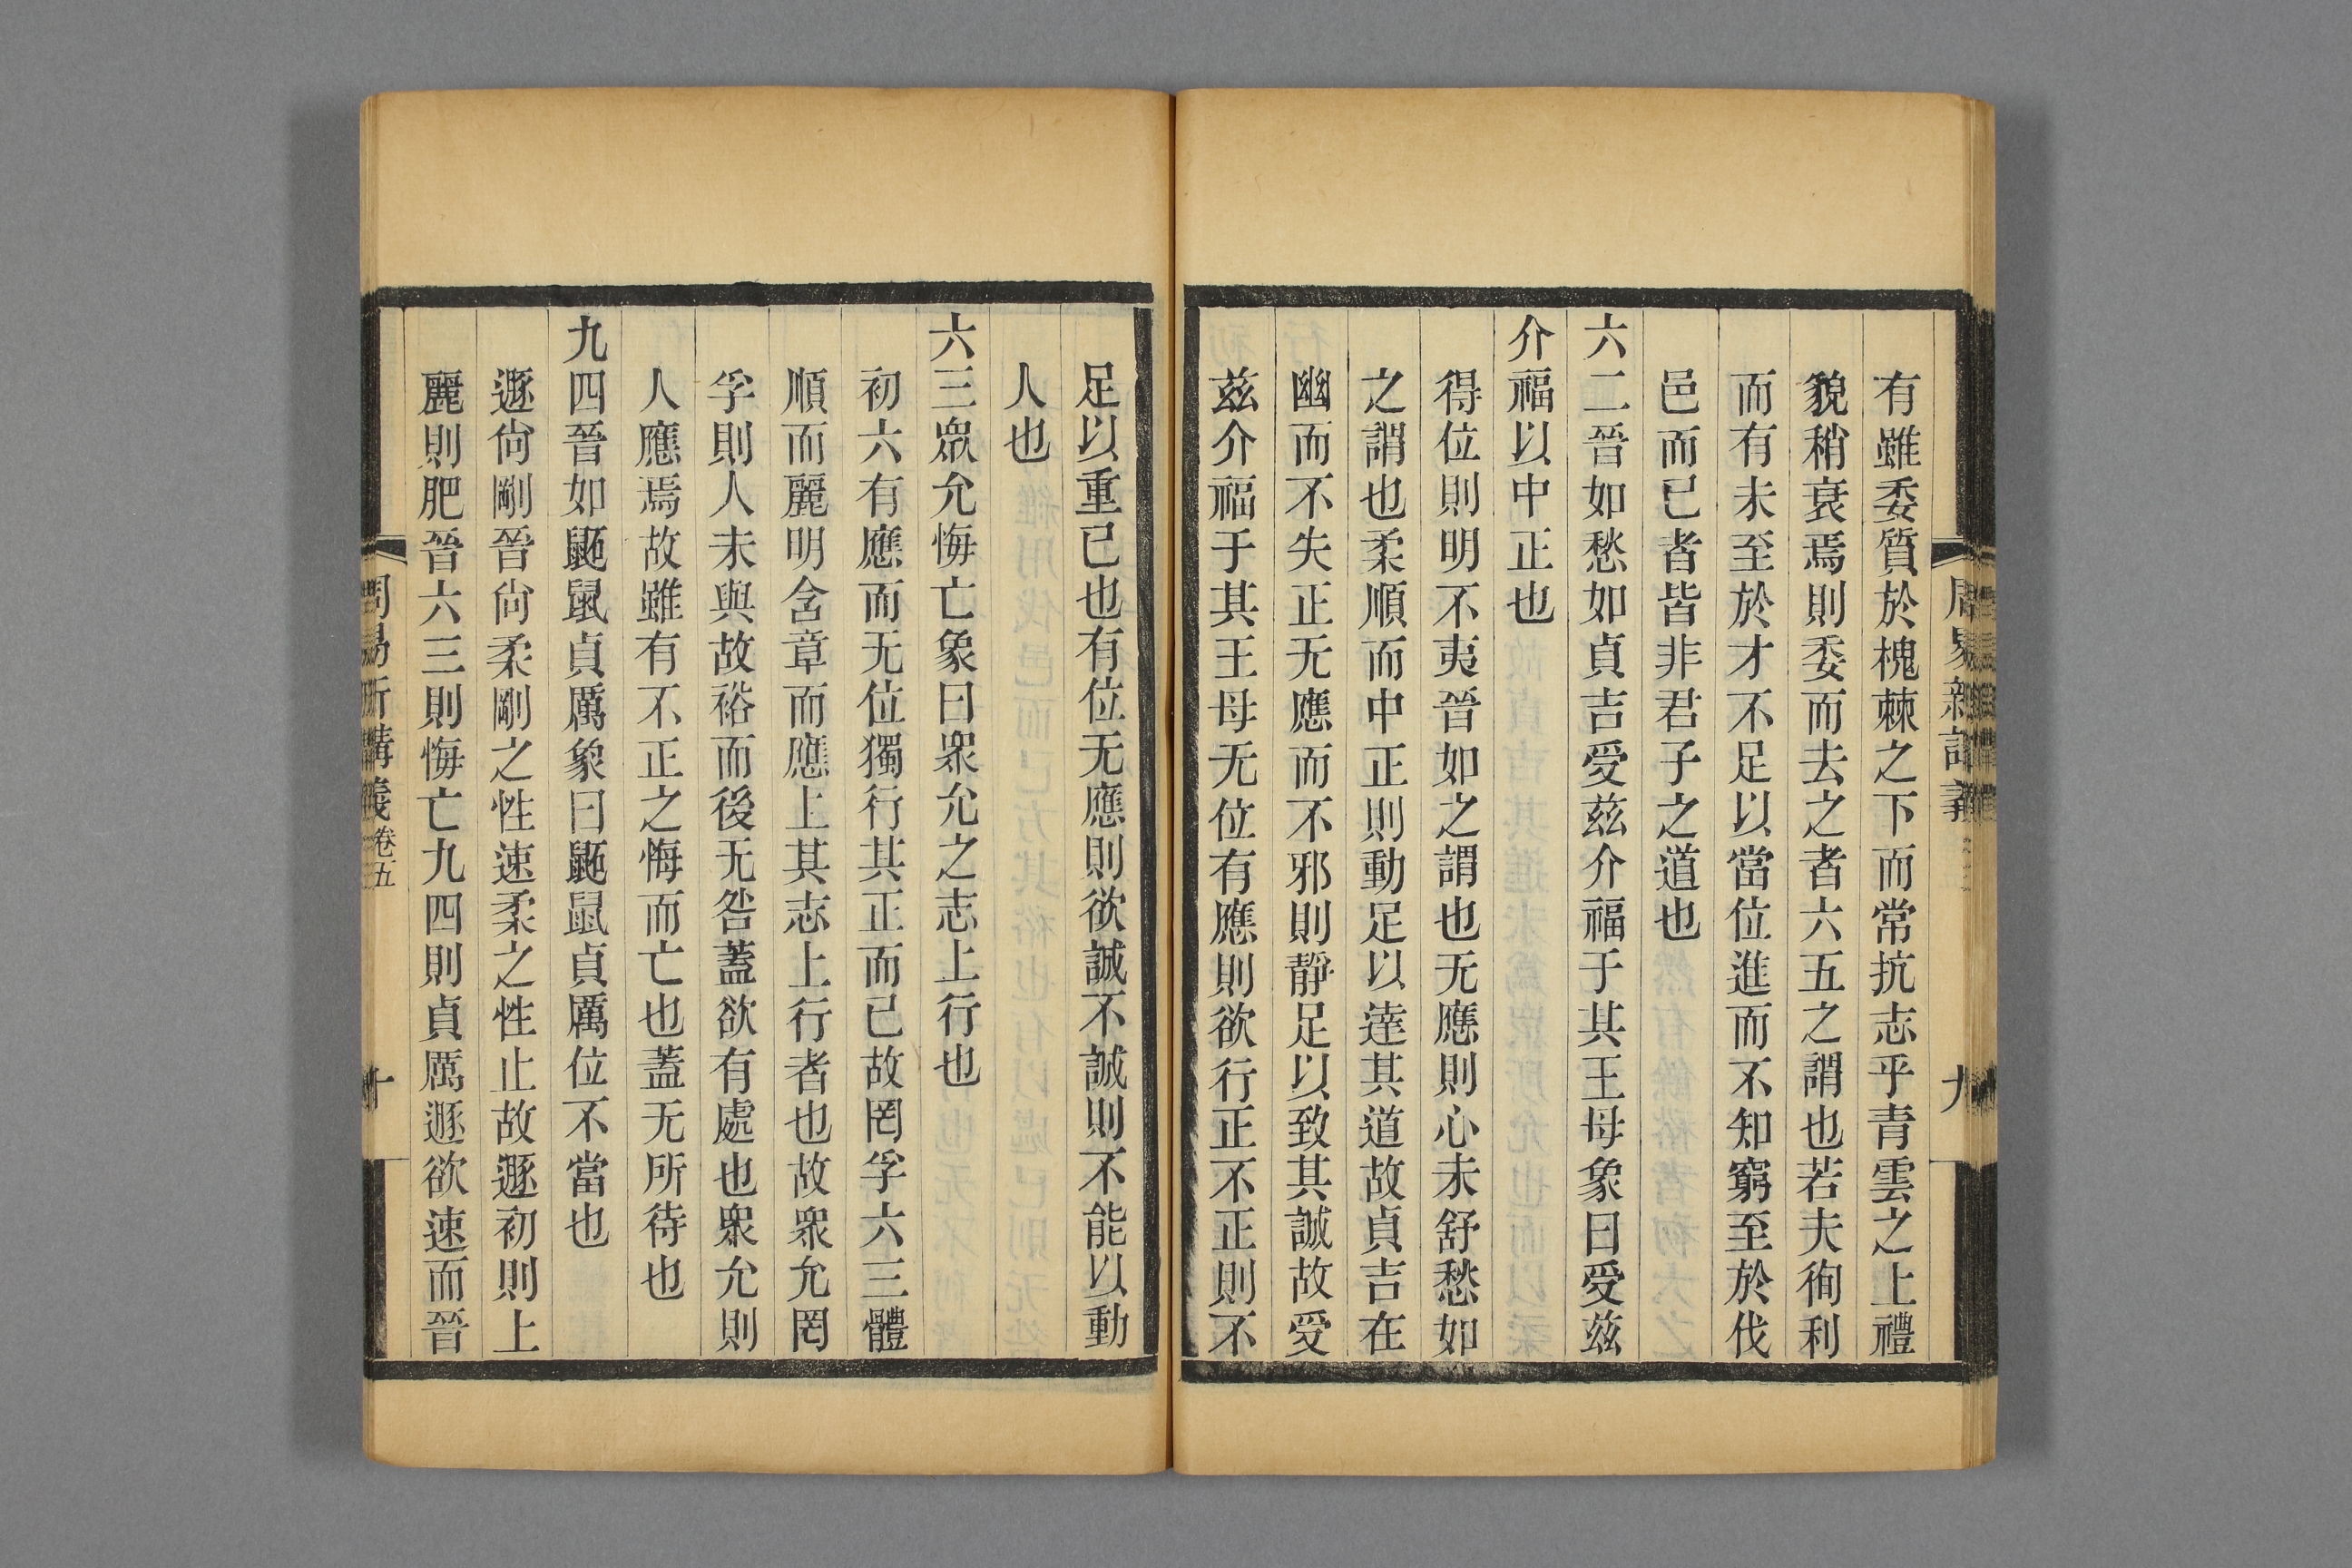 有雖委質於槐棘之下而常抗志乎青雲之上禮
貌稍衰焉則委而去之者六五之謂也若夫徇利
而有未至於才不足以當位進而不知窮至於伐
邑而已者皆非君子之道也
六二晉如愁如貞吉受茲介福于其王母象曰受茲
介福以中正也
得位則明不夷晉如之謂也无應則心未舒愁如
之謂也柔順而中正則動足以達其道故貞吉在
幽而不失正无應而不邪則靜足以致其誠故受
茲介福于其王母无位有應則欲行正不正則不
足以重已也有位无應則欲誠不誠則不能以動
人也
六三眾允悔亡象曰眾允之志上行也
初六有應而无位獨行其正而已故罔孚六三體
順而麗明含章而應上其志上行者也故眾允罔
孚則人未與故裕而後无咎蓋欲有處也眾允則
人應焉故雖有不正之悔而亡也蓋无所待也
九四晉如鼫鼠貞厲象曰鼫鼠貞厲位不當也
遯尙剛晉尙柔剛之性速柔之性止故遯初則上
麗則肥晉六三則悔亡九四則貞厲遯欲速而晉
周易新講義 卷五 十